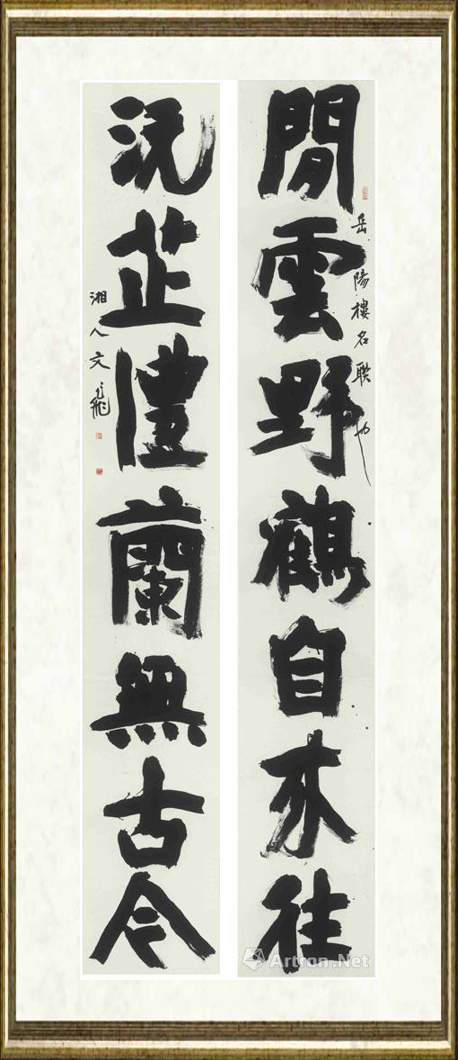 閒雲野鶴自来往
岳陽樓名联也
沅芷澧蘭無古今
湘人文飛
Artron.Net